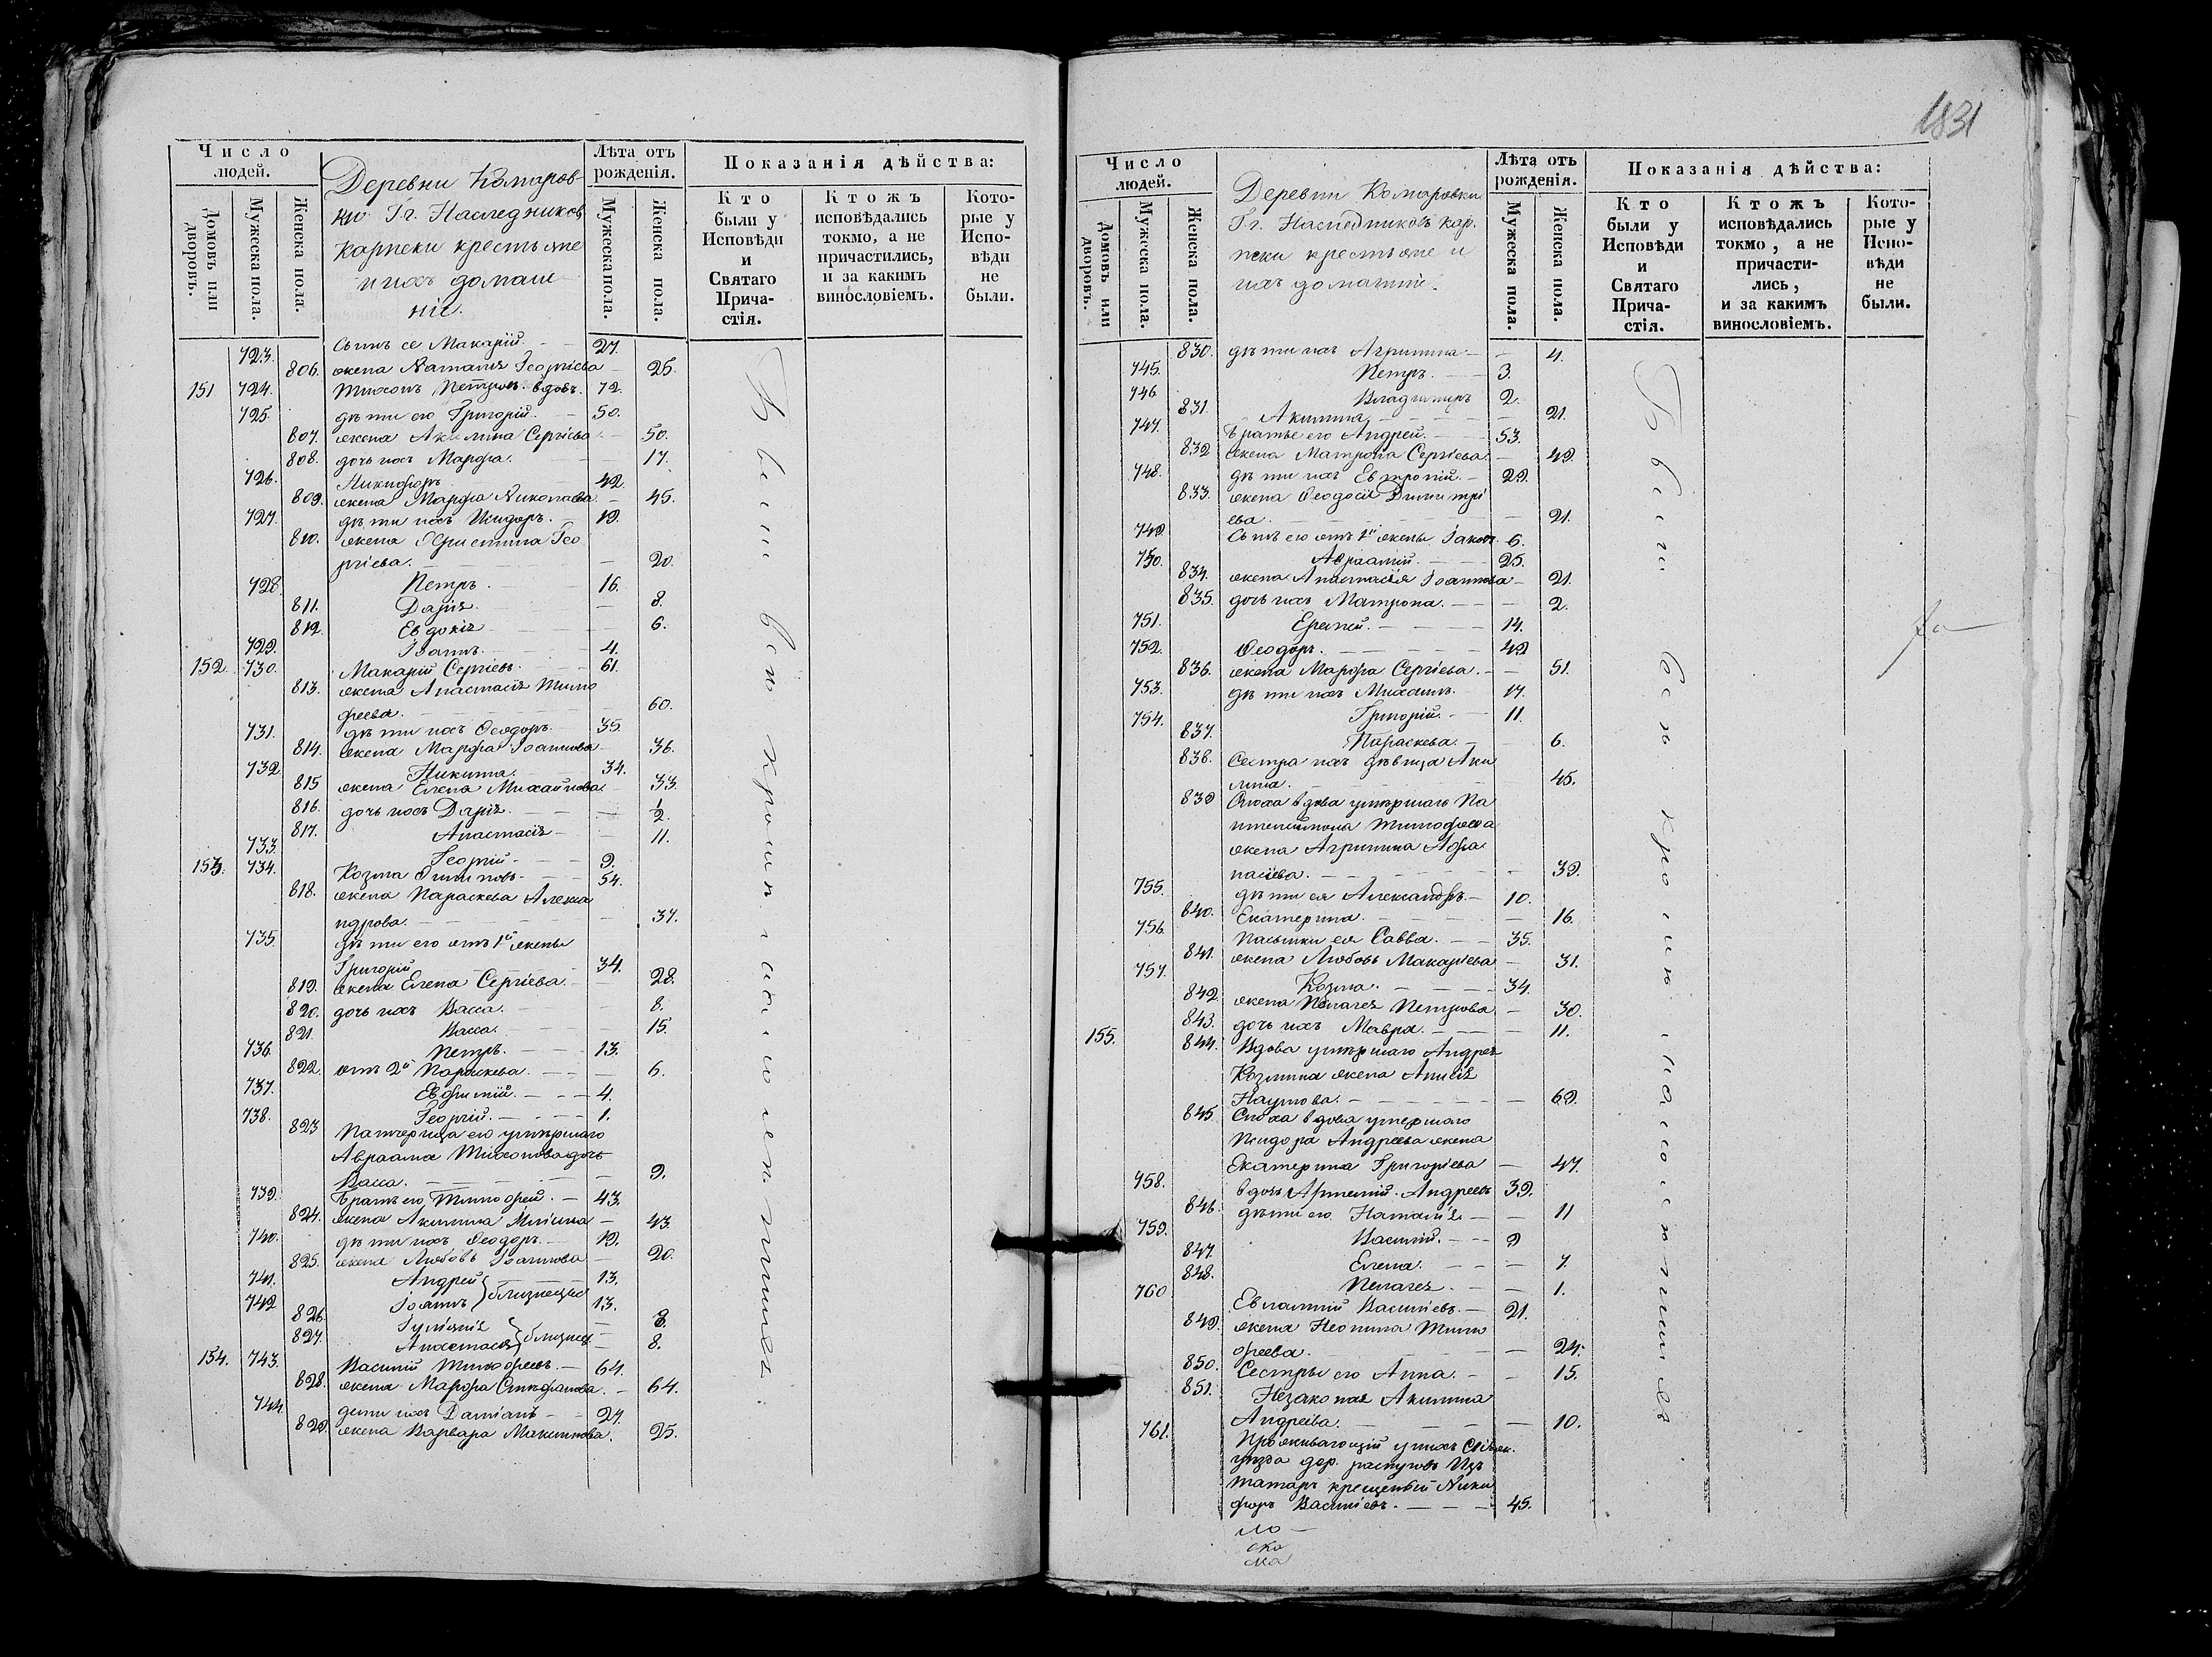 Число людей.
Домовъ или дворовъ.
Мужеска пола.
Женска пола.
Деревни Комаров-
ки Г.г. Наследниковъ
Карпеки крестьяне
и ихъ домаш-
ніе.
Лѣта отъ рожденія.
Мужеска пола.
Женска пола.
Показанія дѣйства:
Кто были у Исповѣди и Святаго Прича-стія.
Ктожъ исповѣдались токмо, а не причастились, и за какимъ винословіемъ.
Кото-рые у Испо-вѣди не были.
723. Сынъ се Макарій 27.
806. жена Наталія Георгіева 25.
151 724. Тихонъ Петровъ вдовъ. 72.
725. дѣти его Григорій. 50.
807. жена Акилина Сергіева 50.
808. дочь ихъ Марѳа. 17.
726. Никифоръ 42.
809. жена Марѳа Николаева 45.
727. дѣти ихъ Исидоръ. 19.
810. жена Христина Гео
ргіева. 20.
728. Петръ. 16.
811. Дарія. 8.
812. Евдокія 6.
729. Іоаннъ. 4.
152. 730. Макарій Сергіевъ. 61.
813. жена Анастасія Тимо
феева. 60.
731. дѣти ихъ Ѳеодоръ. 35.
814. жена Марѳа Іоаннова 36.
732 Никита. 34.
815 жена Елена Михайлова 33.
816. дочь ихъ Дарія. 1/2.
817. Анастасія 11.
733. Георгій. 9.
153. 734. Козма Филиповъ. 54.
818. жена Параскева Алекса
ндрова. 37.
735. дѣти его отъ 1й жены
Григорій 34.
819. жена Елена Сергіева. 28.
820. дочь ихъ Васса. 8.
821. Васса. 15.
736. Петръ. 13.
822. отъ 2й Параскева. 6.
737. Евфимій. 4.
738. Георгій. 1.
823 Патчерица его умершаго
Авраама Тихонова дочь
Васса. 9.
739. Братъ его Тимофей. 43.
824. жена Акилина Ильина 43.
740. дѣти ихъ Ѳеодоръ. 19.
825. жена Любовь Іоаннова 20.
741. Андрей 13.
близнецы
742 Іоаннъ 13.
826. Іуліанія 8.
827. Анастасія близнец. 8.
154. 743. Василій Тимофеевъ. 64.
828. жена Марѳа Стефанова. 64.
744. дети ихъ Даміанъ 27.
829. жена Варвара Максимова. 25.
Были всѣ кромѣ малолетнихъ.
1831
Число людей.
Домовъ или дворовъ.
Мужеска пола.
Женска пола.
Деревни Комаровки
Г.г. Наследниковъ Кар.
пеки крестьяне и
ихъ домашніе.
Лѣта отъ рожденія.
Мужеска пола.
Женска пола.
Показанія дѣйства:
Кто были у Исповѣди и Святаго Прича-стія.
Ктожъ исповѣдались токмо, а не причасти-лись, и за какимъ винословіемъ.
Кото-рые у Испо-вѣди не были.
830. дѣти ихъ Агрипина. 4.
745. Петръ. 3.
746 Владимиръ 2.
831. Акилина 21.
747. Братье его Андрей. 53.
832 жена Матрона Сергіева. 49.
748. дѣти ихъ Евтропій. 29.
833. жена Ѳеодосія Димитрі
ева. 21.
749. Сынъ его отъ 1й жены Іаковъ. 6.
750. Авраамій. 25.
834. жена Анастасія Іоаннова 21.
835. дочь ихъ Матрона. 2.
751. Ермей. 14.
752. Ѳеодоръ. 49
836. жена Марѳа Сергіева. 51.
753. дѣти ихъ Михаилъ. 17.
754. Григорій. 11.
837. Параскева. 6.
838. Сестра ихъ дѣвица Аки
лина. 45.
839 Сноха вдова умершаго Па
нтелеимона Тимофеева
жена Агрипина Афа
насіева. 39.
755. дѣти ея Александръ. 10.
840. Екатерина. 16.
756. Пасынки ея Савва. 35.
841. жена Любовь Макаріева 31.
757. Козма. 34.
842 жена Пелагея Петрова 30.
843. дочь ихъ Мавра. 11.
155. 844. Вдова умершаго Андрея
Козмина жена Анисія
Наумова. 69.
845. Сноха вдова умершаго
Исидора Андреева жена
Екатерина Григоріева 47.
458. вдовъ Артемій Андреевъ 39.
846. дѣти его Наталія 11
759. Василій. 9
847. Елена. 7.
848. Пелагея. 1.
760 Евлампій Василіевъ. 21.
849. жена Неонила Тимо
феева. 24.
850. Сестры его Анна. 15.
851. Незаконая Акилина
Андреева. 10.
761. Проживающій у нихъ
уезда дер. изъ
татаръ крещеный Ники
форъ Василіевъ. 45.
Были всѣ кромѣ малолетнихъ